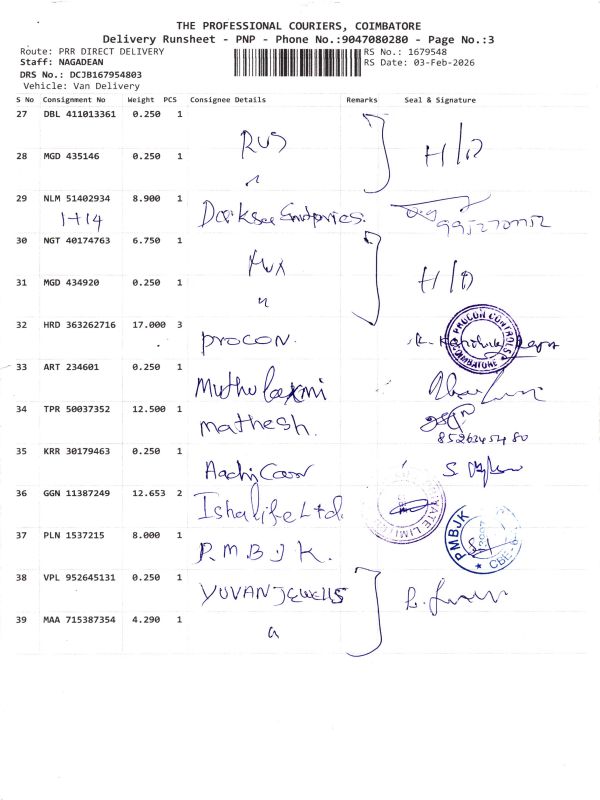 THE PROFESSIONAL COURIERS, COIMBATORE
Delivery Runsheet - PNP - Phone No.:9047080280 - Page No.:3
Route: PRR DIRECT DELIVERY RS No.: 1679548
Staff: NAGADEAN RS Date: 03-Feb-2026
DRS No.: DCJB167954803
Vehicle: Van Delivery
S No Consignment No Weight PCS Consignee Details Remarks Seal & Signature
27 DBL 411013361 0.250 1
RUS H/O
28 MGD 435146 0.250 1
"
29 NLM 51402934 8.900 1
1414
9952701152
30 NGT 40174763 6.750 1
H/O
31 MGD 434920 0.250 1
"
32 HRD 363262716 17.000 3
procon. PROCON CONTROLS COIMBATORE
33 ART 234601 0.250 1
Muthu laxmi
34 TPR 50037352 12.500 1
mathesh.
8526345480
35 KRR 30179463 0.250 1
36 GGN 11387249 12.653 2
Ishalife Ltd.
LIMITED
37 PLN 1537215 8.000 1
P.M.B.J.K. PMBJK CBE
38 VPL 952645131 0.250 1
YUVAN JEWELLS
39 MAA 715387354 4.290 1
"